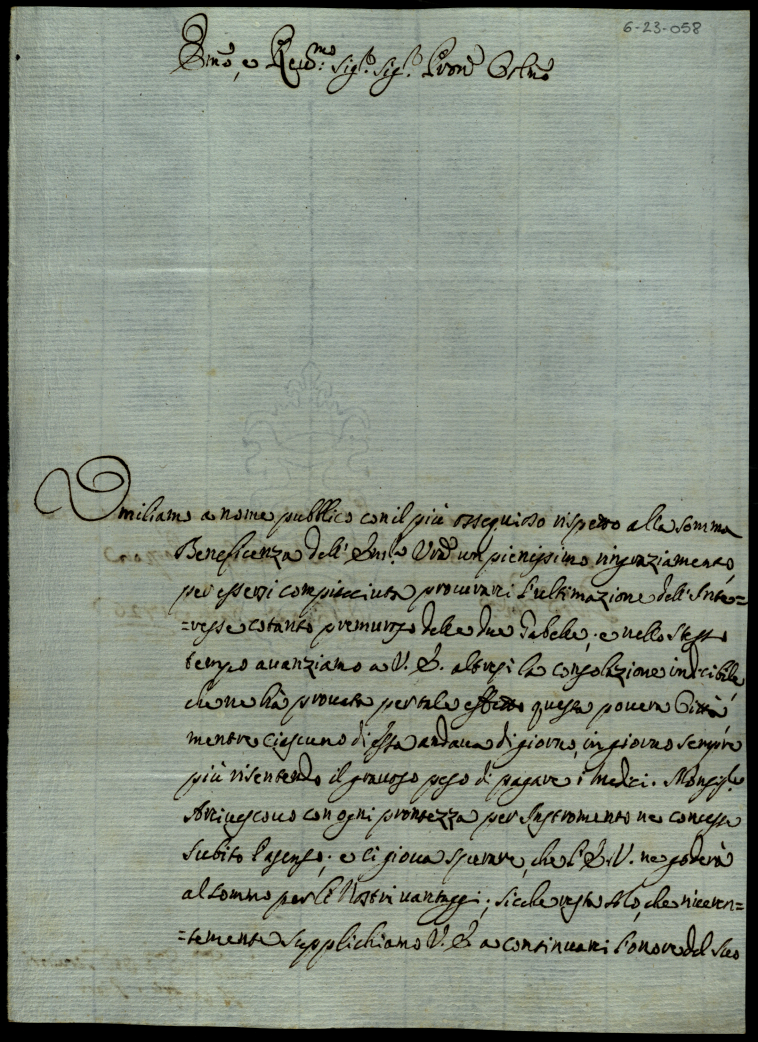 6-23-058
Emo, e Revdmo: Sigre. Sigre. Pron Colmo
Umiliamo a nome pubblico con il più ossequioso rispetto alla somma
Beneficenza dell' Emza Vra un pienissimo ringraziamento,
per essersi compiaciuta procurarci l'ultimazione dell'Inte=
=resse cotanto premuroso delle due Tabelle; e nello stesso
tempo avanziamo a V. E. altresì la consolazione indicibile,
che ne hà provata per tale effetto questa povera Città,
mentre ciascuno di essa andava di giorno, in giorno sempre
più risentendo il gravoso peso di pagare i medici. Monsigr.
Arcivescovo con ogni prontezza per Instromento ne concesse
subito l'assenso; e ci giova sperare, che l'E. V. ne goderà
al sommo per li Nostri vantaggi; sicche resta solo, che riveren=
=temente supplichiamo V. E. a continuarci l'onore del Suo